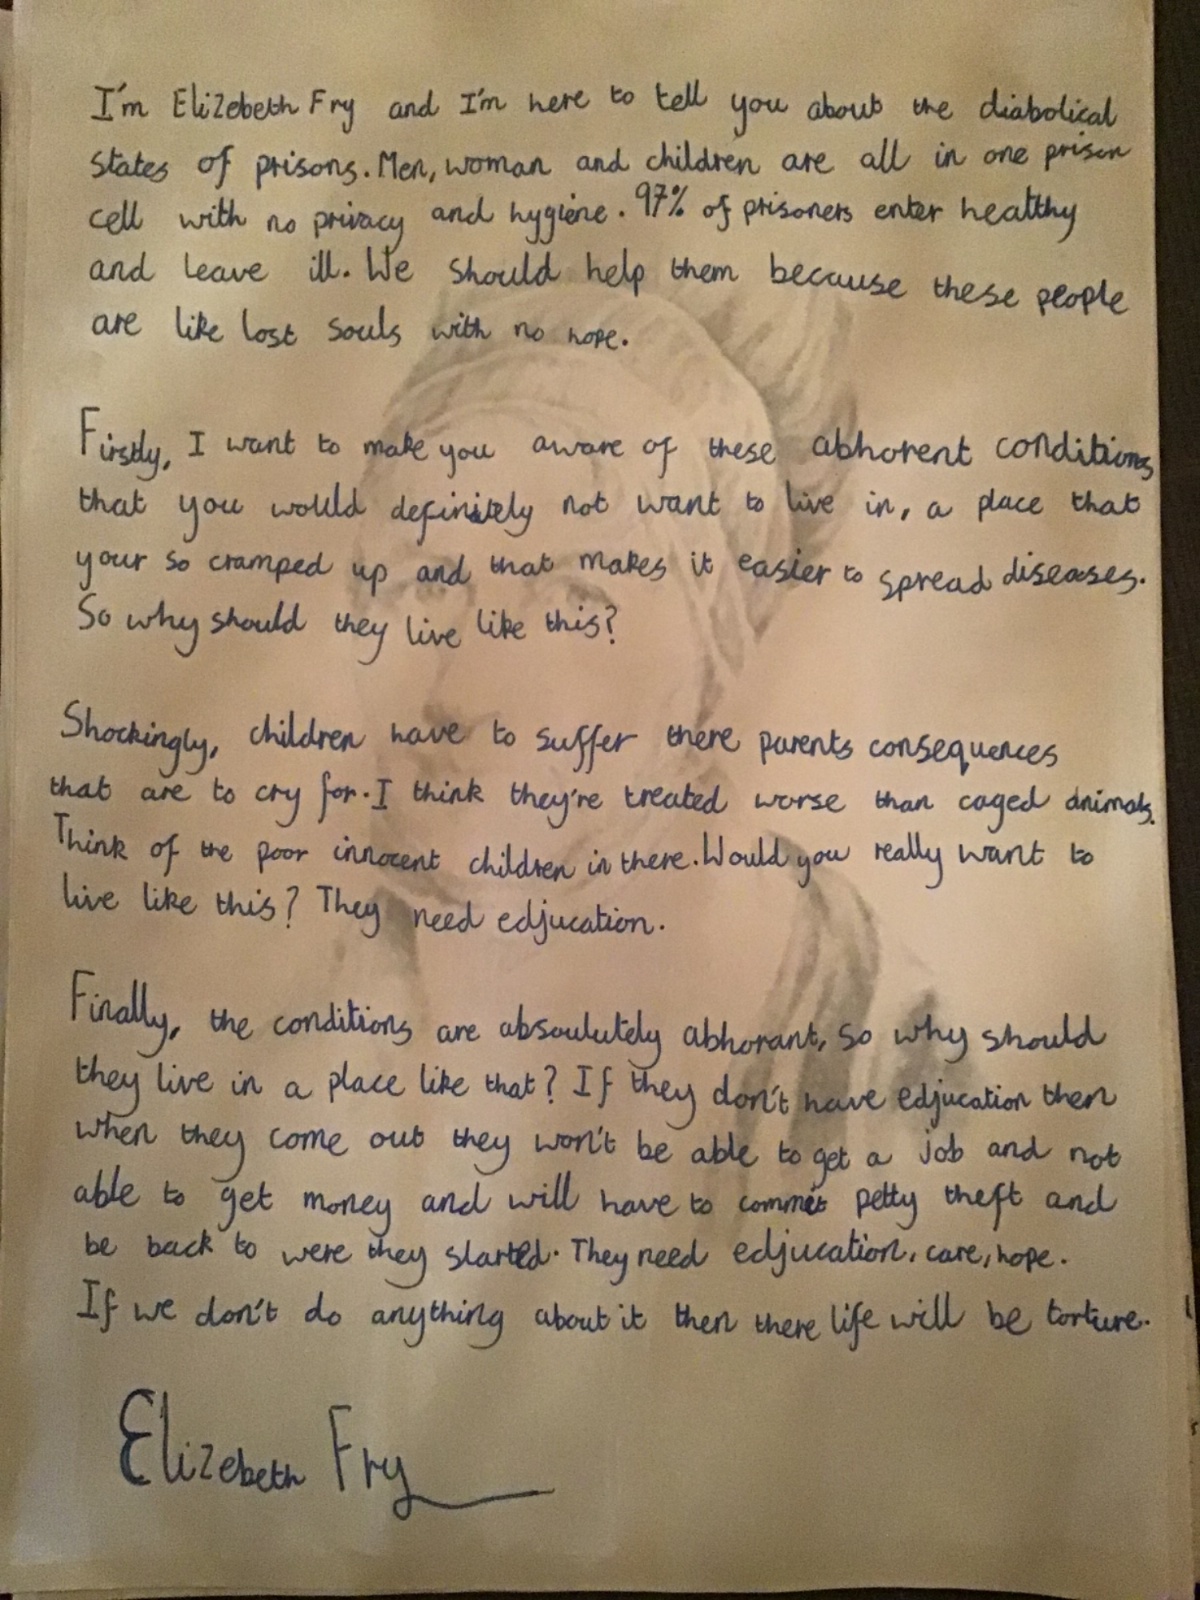 I'm Elizebeth Fry and I'm here to tell you about the diabolical
states of prisons. Men, woman and children are all in one prison
cell with no privacy and hygiene. 97% of prisoners enter healthy
and leave ill. We should help them because these people
are like lost souls with no hope.
Firstly, I want to make you aware of these abhorent conditions
that you would definitely not want to live in, a place that
your so cramped up and that makes it easier to spread diseases.
So why should they live like this?
Shockingly, children have to suffer there parents consequences
that are to cry for. I think they're treated worse than caged animals.
Think of the poor innocent children in there. Would you really want to
live like this? They need edjucation.
Finally, the conditions are absoulutely abhorant, so why should
they live in a place like that? If they don't have edjucation then
when they come out they won't be able to get a job and not
able to get money and will have to commit petty theft and
be back to were they started. They need edjucation, care, hope.
If we don't do anything about it then there life will be torture.
Elizebeth Fry